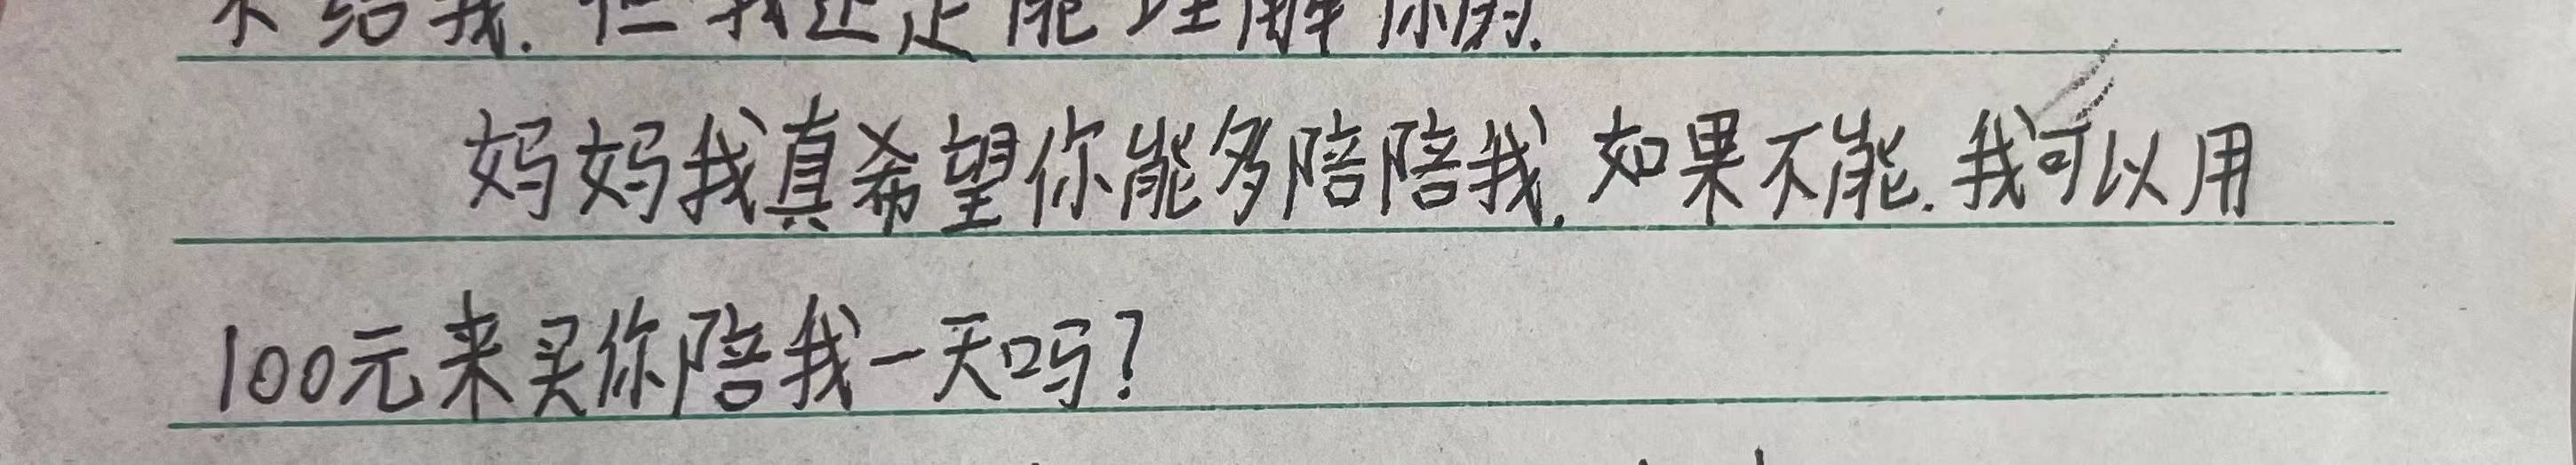 不给我.但我还是能理解你的.
妈妈我真希望你能多陪陪我.如果不能.我可以用
100元来买你陪我一天吗?